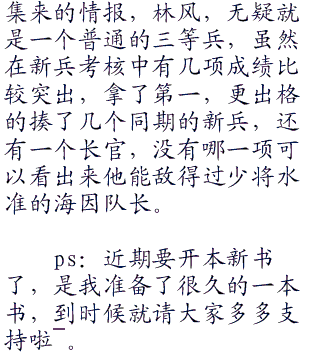 集来的情报，林风，无疑就
是一个普通的三等兵，虽然
在新兵考核中有几项成绩比
较突出，拿了第一，更出格
的揍了几个同期的新兵，还
有一个长官，没有哪一项可
以看出来他能敌得过少将水
准的海因队长。
ps：近期要开本新书
了，是我准备了很久的一本
书，到时候就请大家多多支
持啦¯。